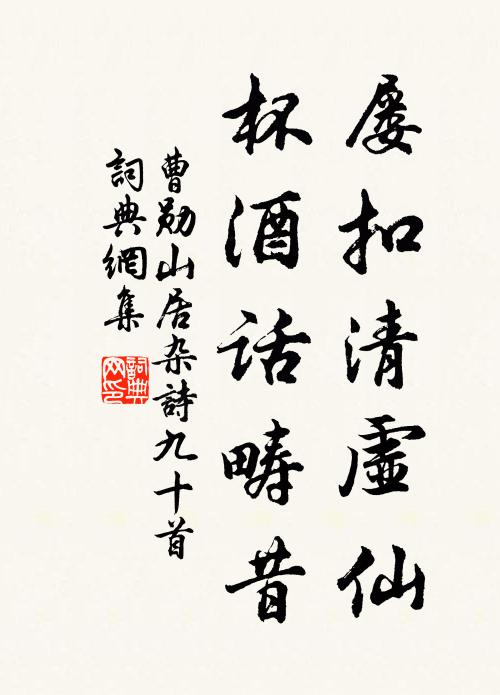 屡扣清虛仙
杯酒话畴昔
曹勋山居杂詩九十首
詞典網集
詞典网印